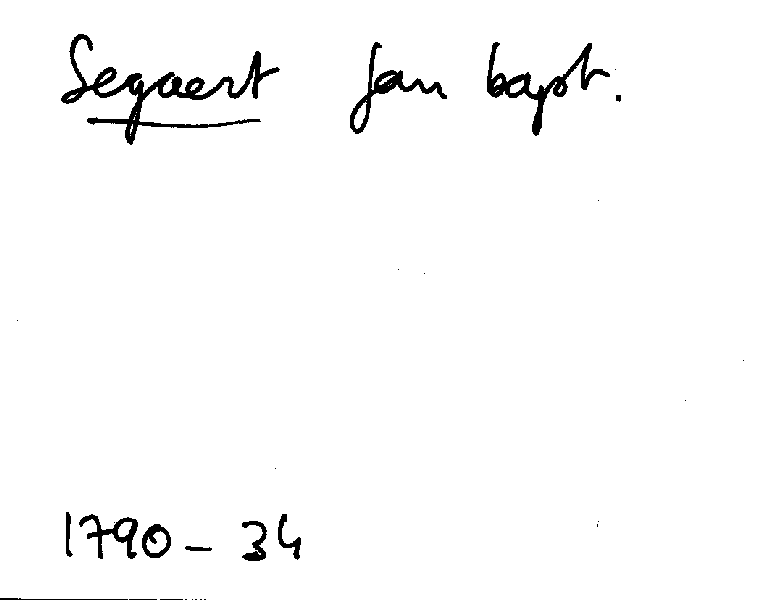 Segaert Jan bapt.
1790 - 34